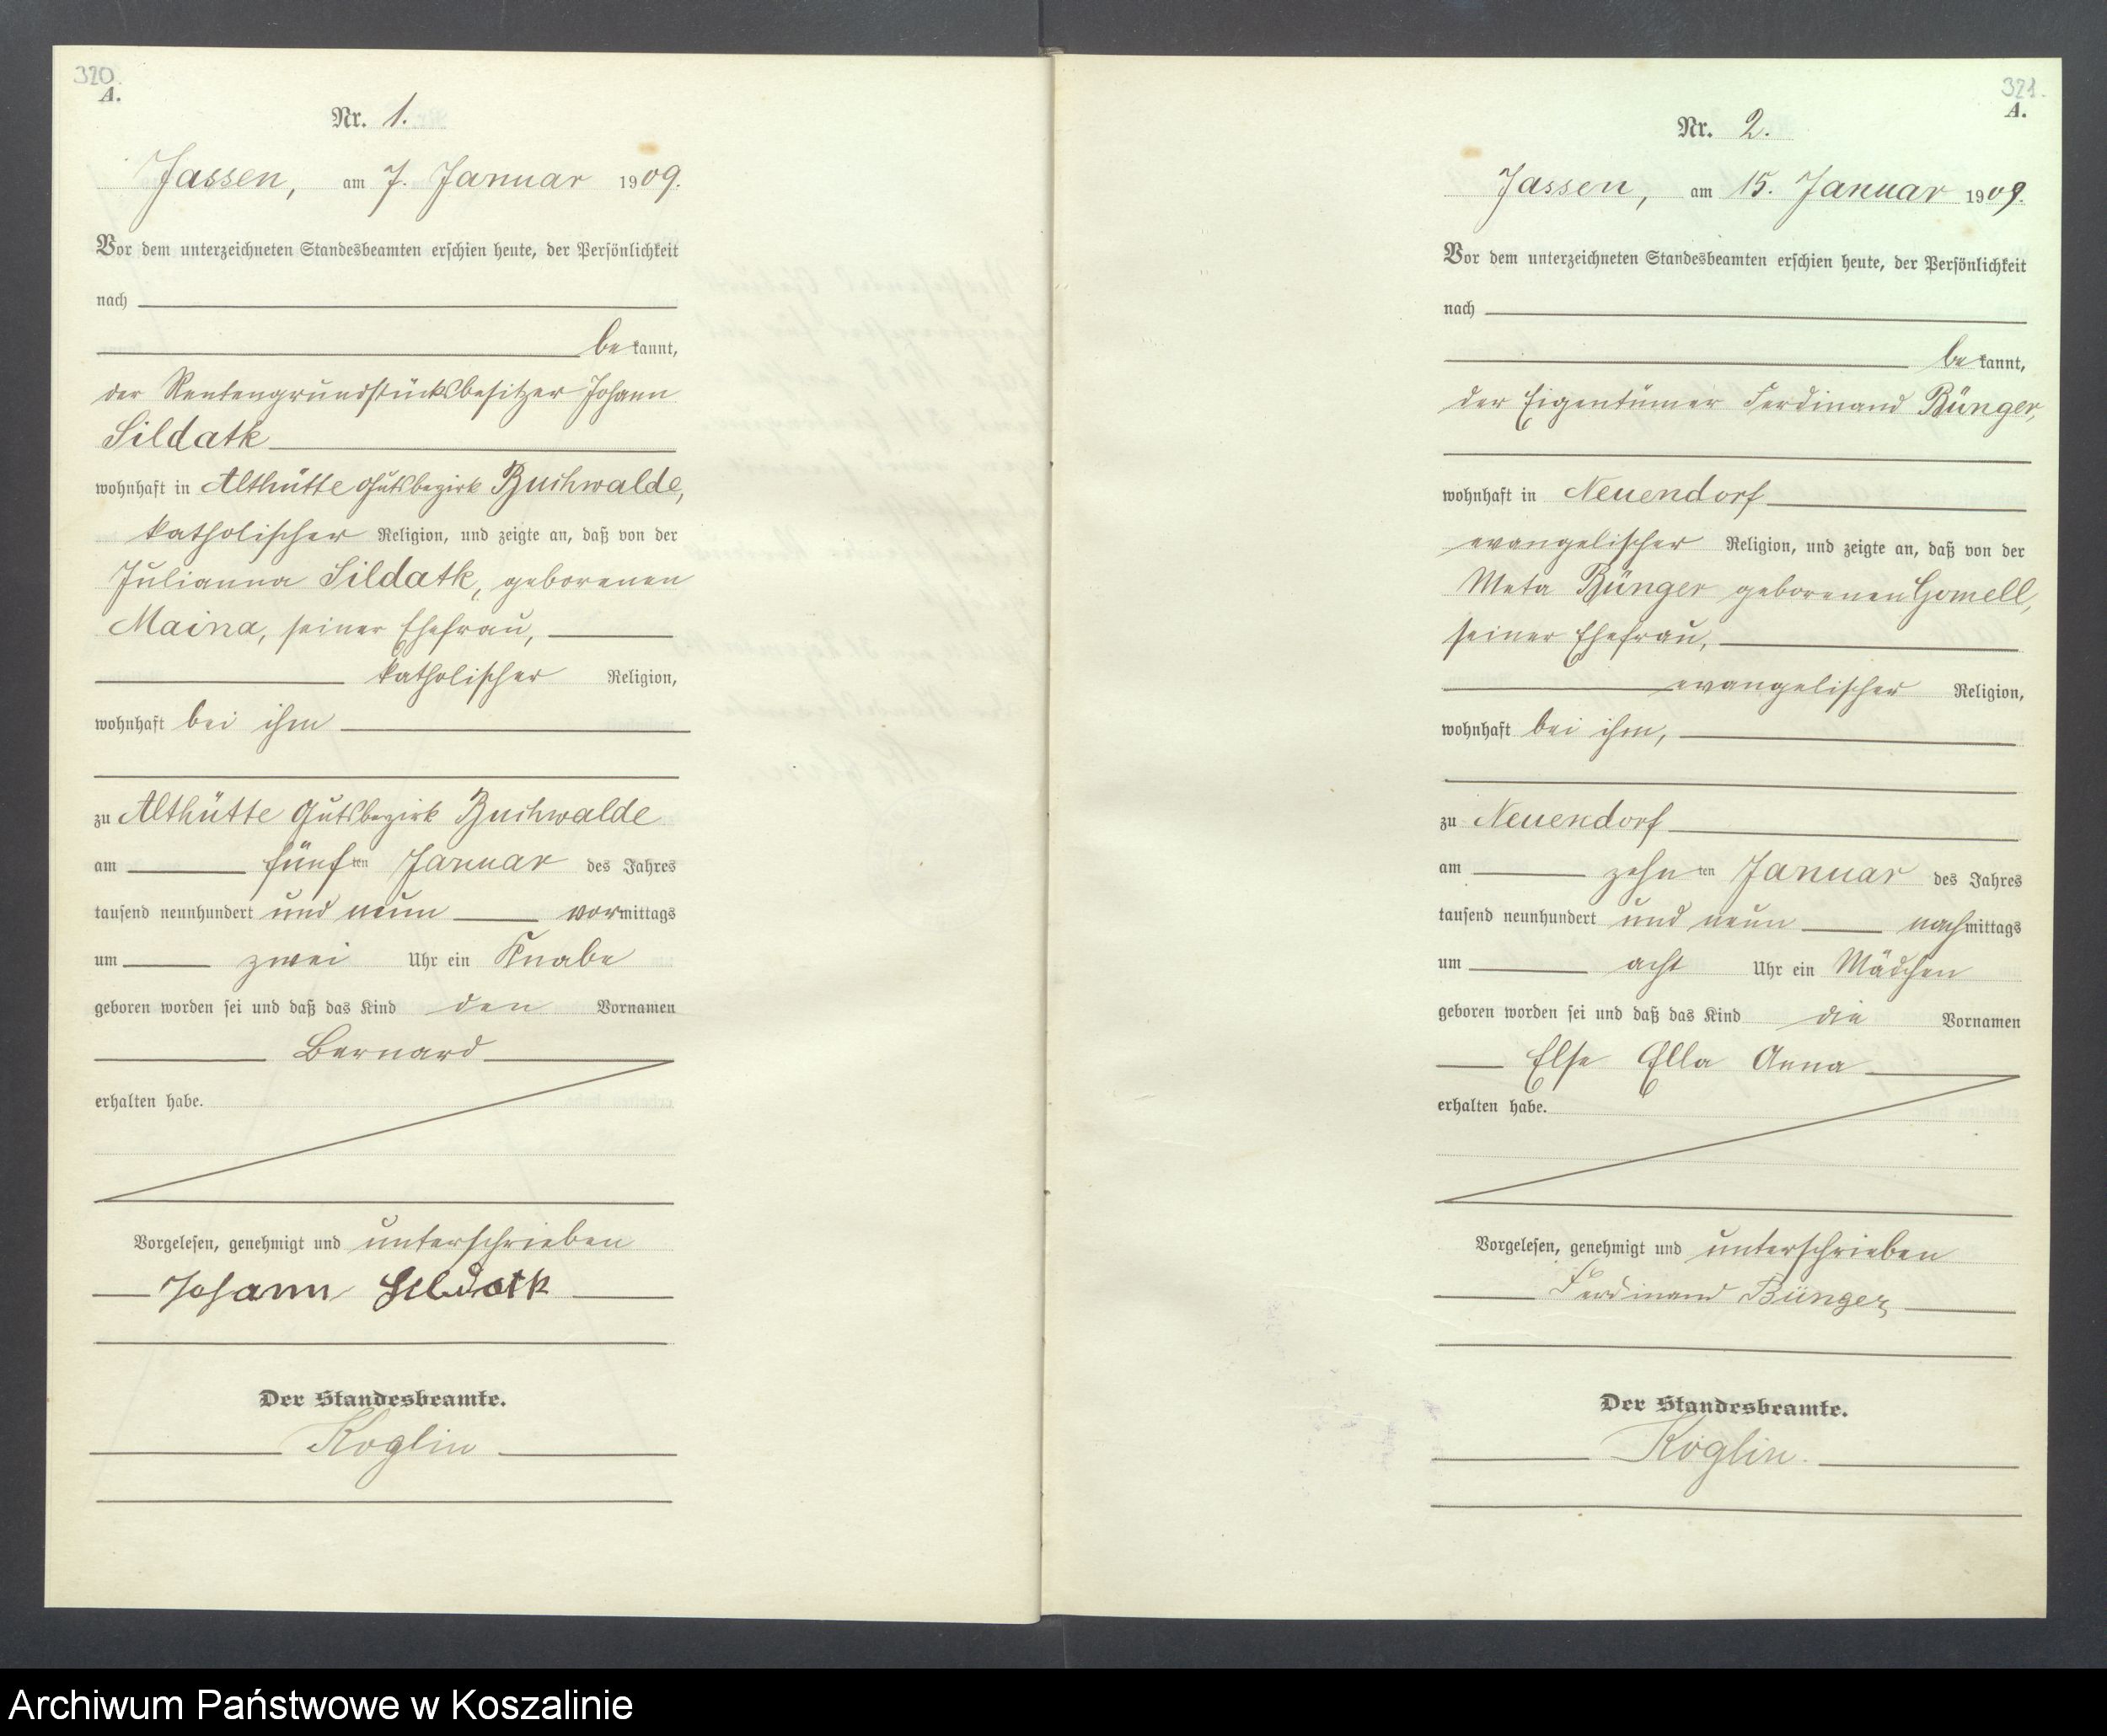 320.
A.
Nr. 1.
Jassen, am 7. Januar 1909.
Vor dem unterzeichneten Standesbeamten erschien heute, der Persönlichkeit
nach
bekannt,
der Rentengrundstücksbesitzer Johann
Sildatk
wohnhaft in Althütte Gutsbezirk Buchwalde,
katholischer Religion, und zeigte an, daß von der
Julianna Sildatk, geborenen
Maina, seiner Ehefrau,
katholischer Religion,
wohnhaft bei ihm
zu Althütte Gutsbezirk Buchwalde
am fünften Januar des Jahres
tausend neunhundert und neun vormittags
um zwei Uhr ein Knabe
geboren worden sei und daß das Kind den Vornamen
Bernard
erhalten habe.
Vorgelesen, genehmigt und unterschrieben
Johann Sildatk
Der Standesbeamte.
Koglin
321.
A.
Nr. 2.
Jassen, am 15. Januar 1909.
Vor dem unterzeichneten Standesbeamten erschien heute, der Persönlichkeit
nach
bekannt,
der Eigentümer Ferdinand Bünger,
wohnhaft in Neuendorf
evangelischer Religion, und zeigte an, daß von der
Meta Bünger geborenen Gomell,
seiner Ehefrau,
evangelischer Religion,
wohnhaft bei ihm,
zu Neuendorf
am zehnten Januar des Jahres
tausend neunhundert und neun nachmittags
um acht Uhr ein Mädchen
geboren worden sei und daß das Kind die Vornamen
Else Ella Anna
erhalten habe.
Vorgelesen, genehmigt und unterschrieben
Ferdinand Bünger
Der Standesbeamte.
Koglin.
Archiwum Państwowe w Koszalinie